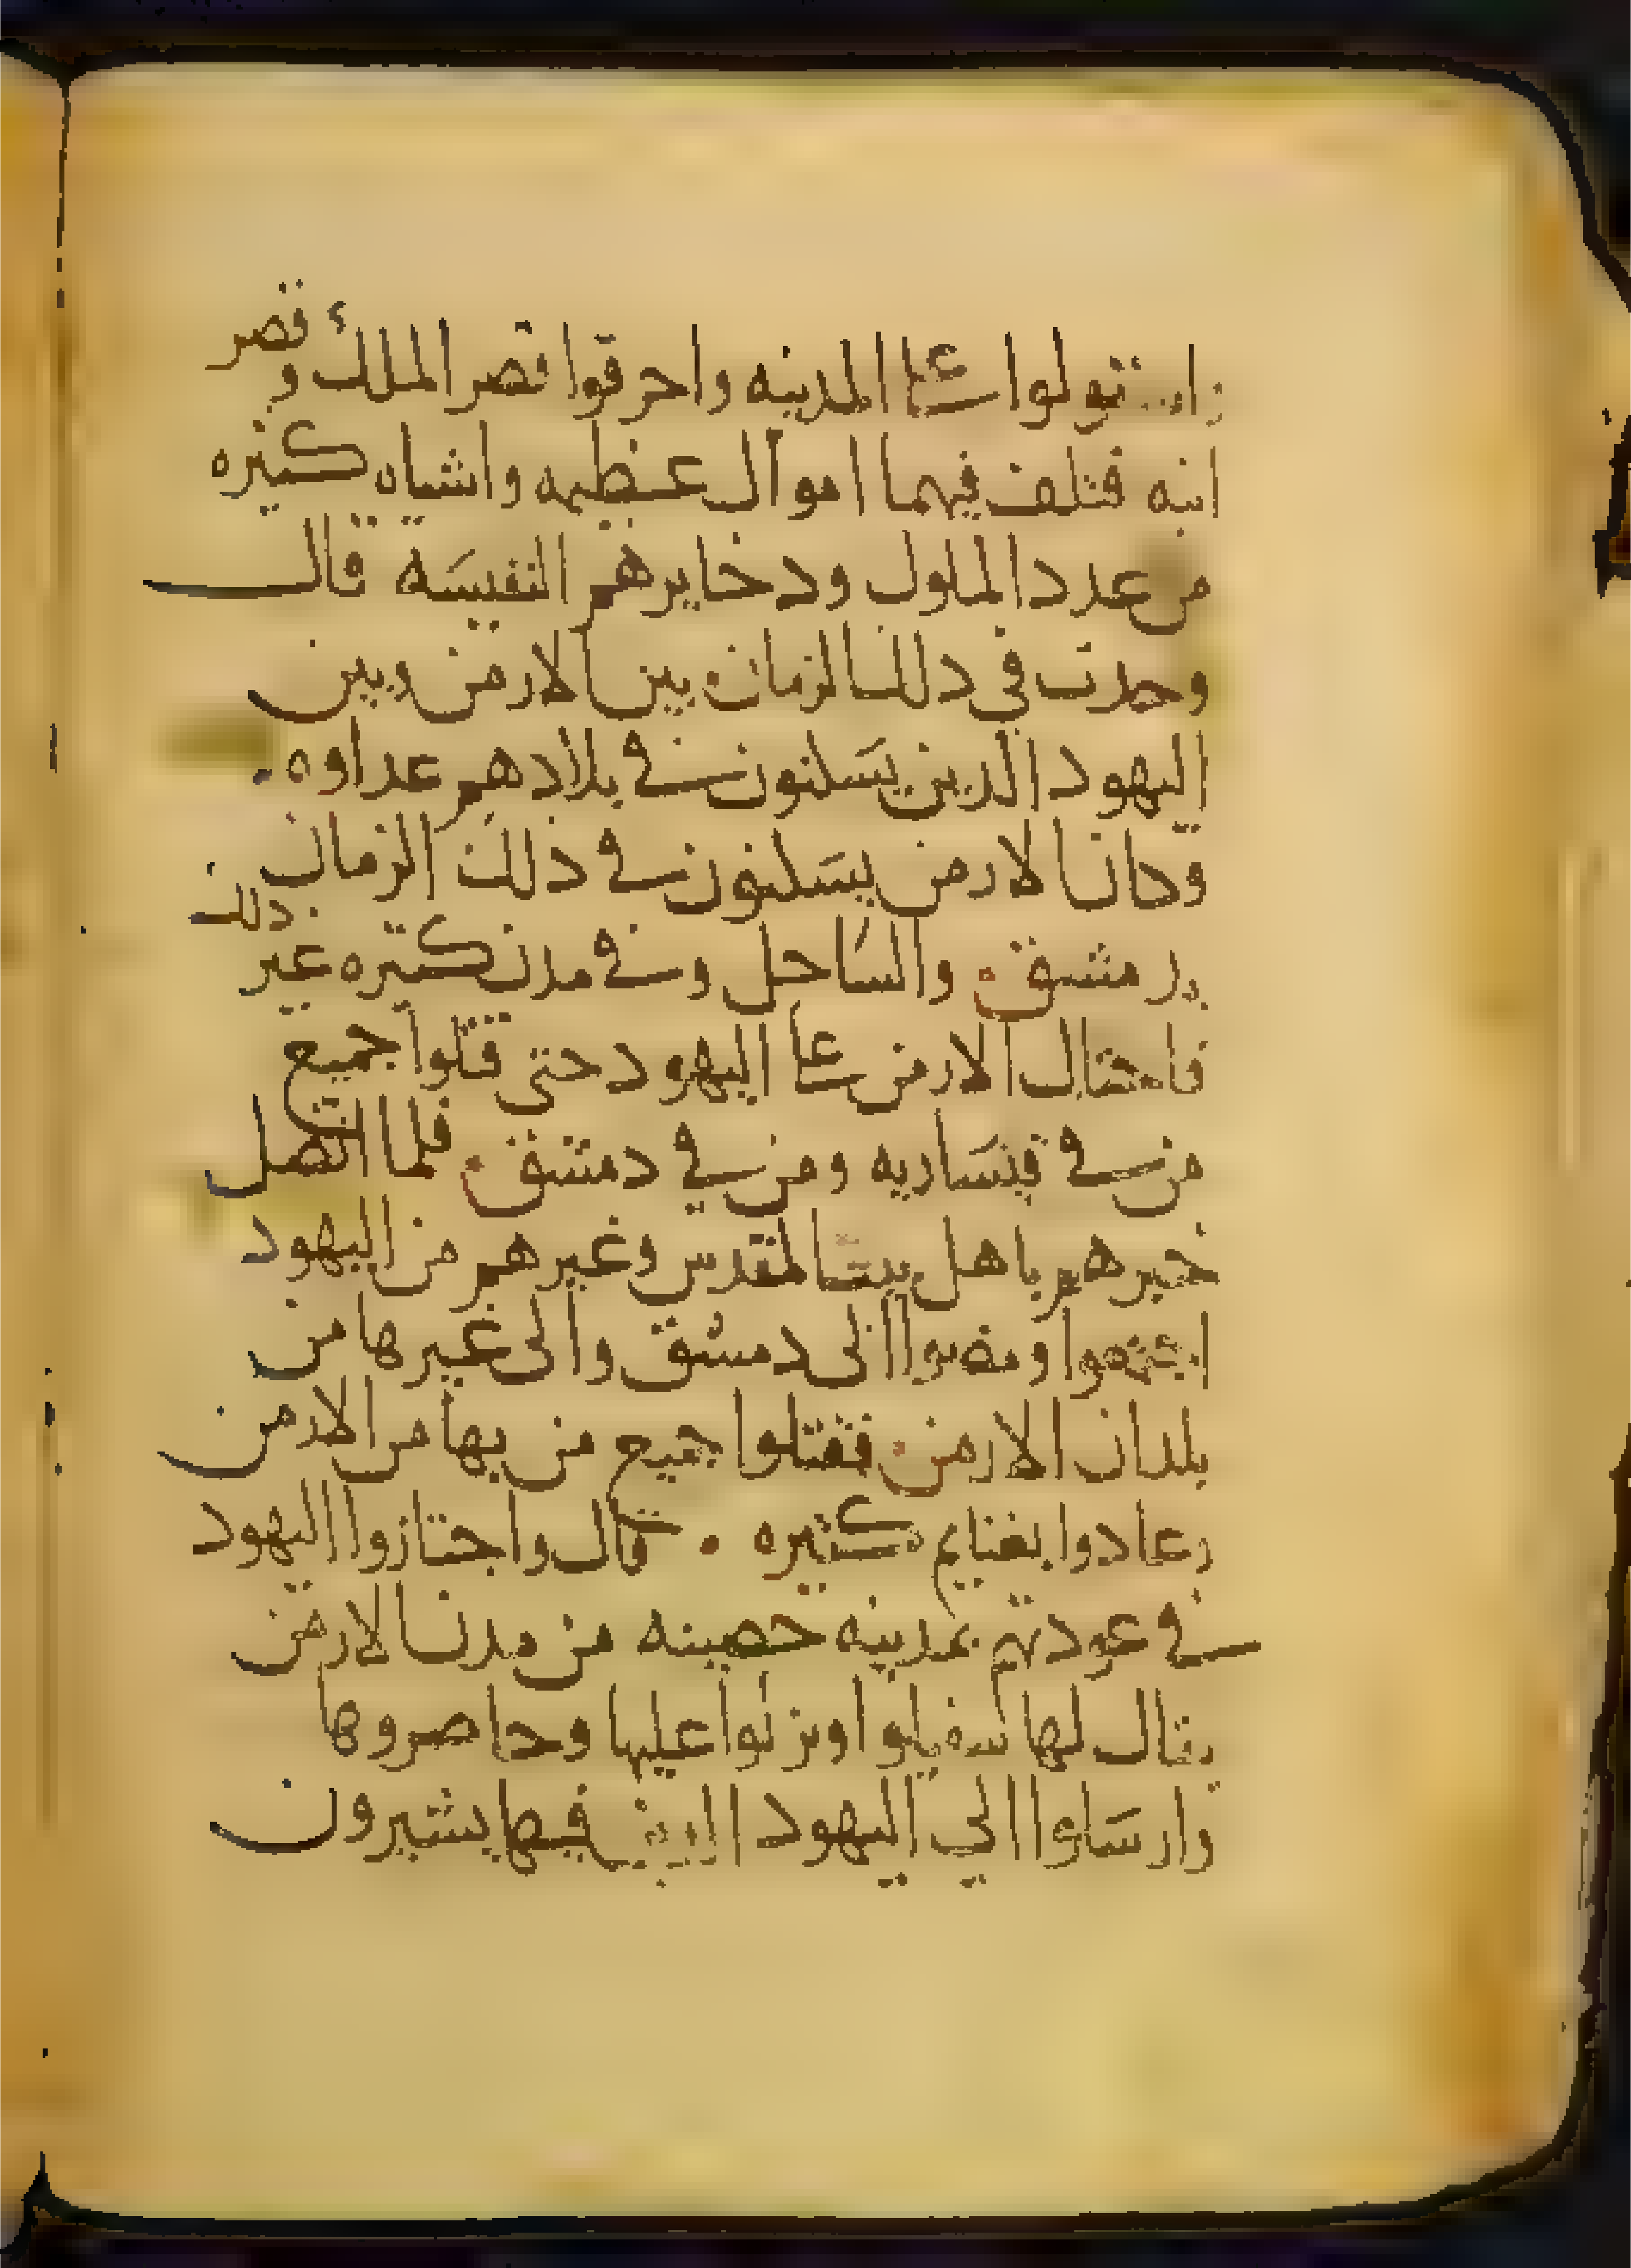 واستولوا على المدينه واحرقوا قصر الملك وقصر
ابنه فتلف فيهما اموال عظيمه واشياه كثيره
من عدد الملوك ودخايرهم النفيسه قال
وحدث في دلك الزمان بين الارمن وبين
اليهود الدين يسكنون في بلادهم عداوه
وكان الارمن يسكنون في ذلك الزمان
بدمشق والساحل وفي مدن كثيره غير ذلك
فاحتال الارمن على اليهود حتى قتلوا جميع
من في قيساريه ومن في دمشق فلما اتصل
خبرهم باهل بيت المقدس وغيرهم من اليهود
اجتمعوا ومضوا الى دمشق والى غيرها من
بلدان الارمن فقتلوا جميع من بها من الارمن
وعادوا بغنايم كثيره . قال واجتازوا اليهود
في عودتهم بمدينه حصينه من مدن الارمن
يقال لها ونزلوا عليها وحاصروها
وارسلوا الي اليهود الدين فيها يشيرون